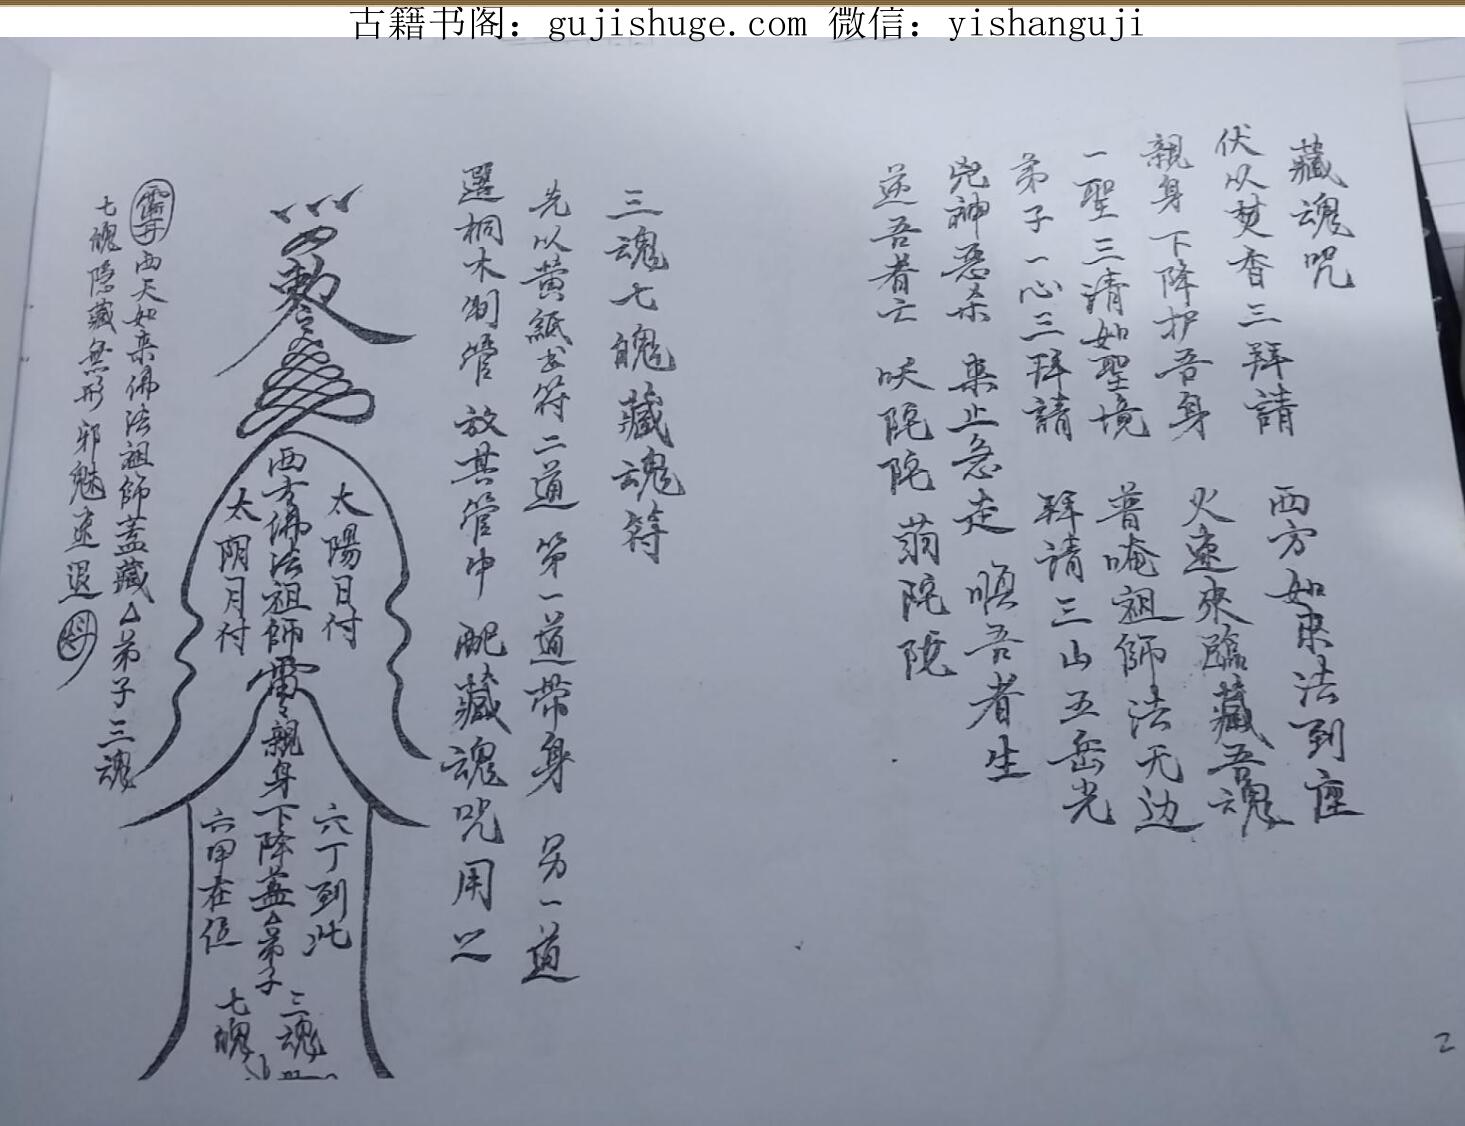 古籍书阁：gujishuge.com 微信：yishanguji
藏魂咒
伏以焚香三拜請 西方如来法到座
親身下降护吾身 火速来臨藏吾魂
一聖三清如聖境 普唵祖師法无边
弟子一心三拜請 拜请三山五岳光
兇神惡杀集止急走 順吾者生
逆吾者亡 吠陀陀 蒻陀陀
三魂七魄藏魂符
先以黄紙书符二道 第一道带身 另一道
選桐木制管 放其管中 配藏魂咒用之
敕令
西方佛法祖師雷令親身下降蓋△弟子
太陽日付
太阴月付
六丁到此
六甲在位
三魂
七魄
西天如来佛法祖師蓋藏△弟子三魂
七魄隐藏無形邪魅速退
2